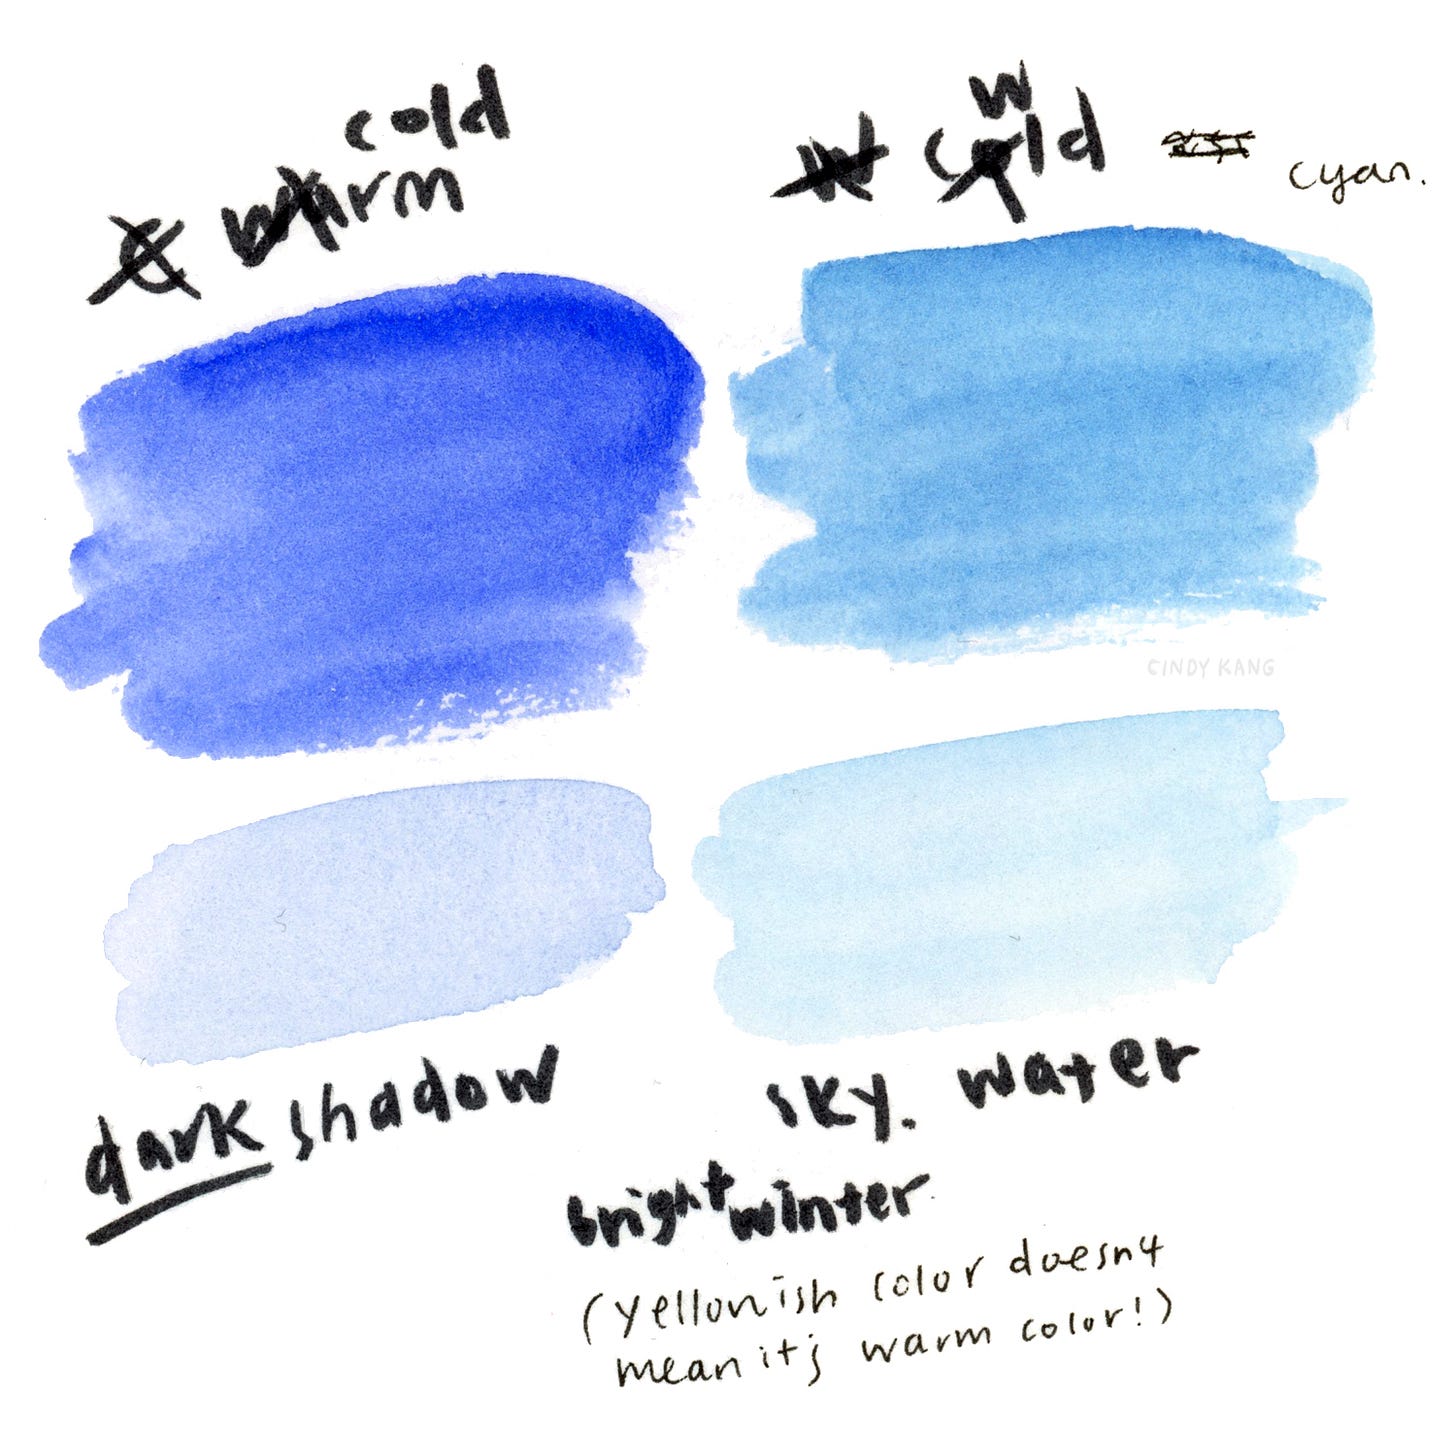 cold
warm
w
cold
cyan.
CINDY KANG
dark shadow
sky. water
bright winter
(yellowish color doesn't
mean it's warm color!)